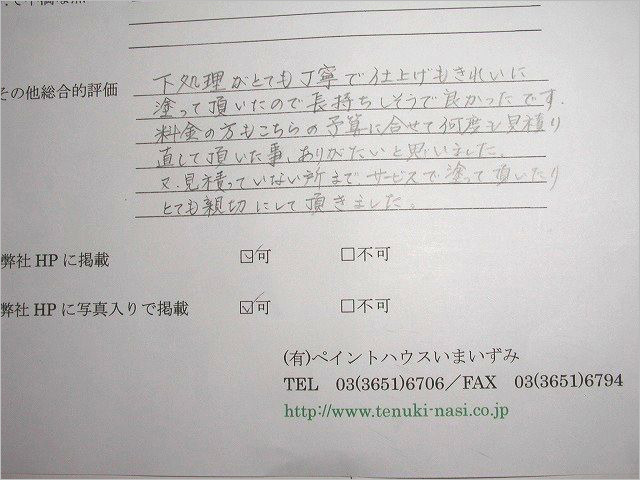 その他総合的評価
下処理がとても丁寧で仕上げもきれいに
塗って頂いたので長持ちしそうで良かったです.
料金の方もこちらの予算に合せて何度も見積り
直して頂いた事、ありがたいと思いました.
又、見積っていない所まで、サービスで塗って頂いたり
とても親切にして頂きました。
弊社 HP に掲載 ☑可 □不可
弊社 HP に写真入りで掲載 ☑可 □不可
(有)ペイントハウスいまいずみ
TEL 03(3651)6706／FAX 03(3651)6794
http://www.tenuki-nasi.co.jp